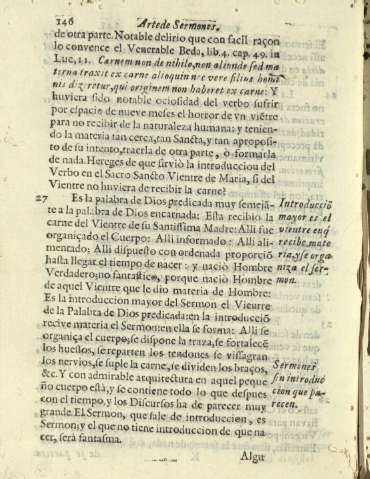 146 Arte de Sermones,
de otra parte. Notable delirio que con facil raçon
lo convence el Venerable Beda, lib. 4. cap. 49. in
Luc, 11. Carnem non de nihilo, non aliunde sed ma
terna traxit ex carne alioquin nec vere filius homi
nis diceretur, qui originem non haberet ex carne: Y
huviera sido notable ociosidad del verbo sufrir
por espacio de nueve meses el horror de vn viẽtre
para no recibir de la naturaleza humana: y tenien-
do la materia tan cerca, tan Sancta, y tan aproposi-
to de su intento, traerla de otra parte, ò formarla
de nada. Hereges de que sirviò la introduccion del
Verbo en el Sacro Sancto Vientre de Maria, si del
Vientre no huviera de recibir la carne?
27 Es la palabra de Dios predicada muy semejã-
te a la palabra de Dios encarnada: Esta recibio la
carne del Vientre de su Santissima Madre: Alli fue
organiçado el Cuerpo: Alli informado: Alli ali-
mentado: Alli dispuesto con ordenada proporciõ
hasta llegar el tiempo de nacer: y naciò Hombre
Verdadero, no fantastico, porque naciò Hombre
de aquel Vientre que le dio materia de Hombre:
Es la introduccion mayor del Sermon el Vientre
de la Palabra de Dios predicada: en la introducciõ
recive materia el Sermon: en ella se forma: Alli se
organiça el cuerpo, se dispone la traza, se fortalecẽ
los huessos, se reparten los tendones se
los nervios, se suple la carne, se dividen los braços,
&c. Y con admirable arquitectura en aquel peque
ño cuerpo està, y se contiene todo lo que despues
con el tiempo, y los Discursos ha de parecer muy
grande. El Sermon, que sale de introduccion, es
Sermon; y el que no tiene introduccion de que na
cer, serà fantasma.
Introducciõ
mayor es el
vientre enq̃
recibe mate
ria, y se orga
niza el ser-
mon.
Sermones
sin introduc
cion que pa-
recen.
Algu